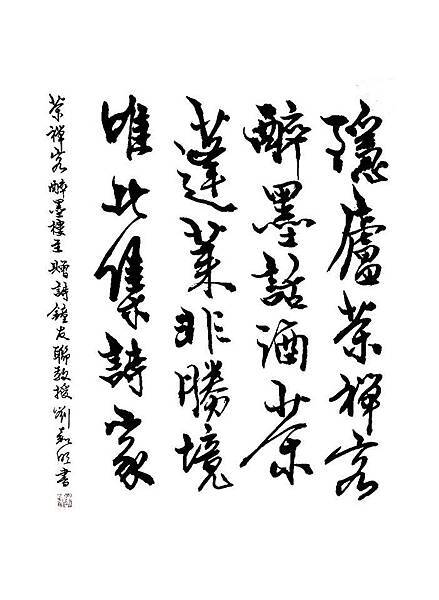 隱廬茶禪客
醉墨話酒茶
蓬萊非勝境
唯此集詩家
茶禪客醉墨樓主贈詩鐘友聯教授劉嘉明書